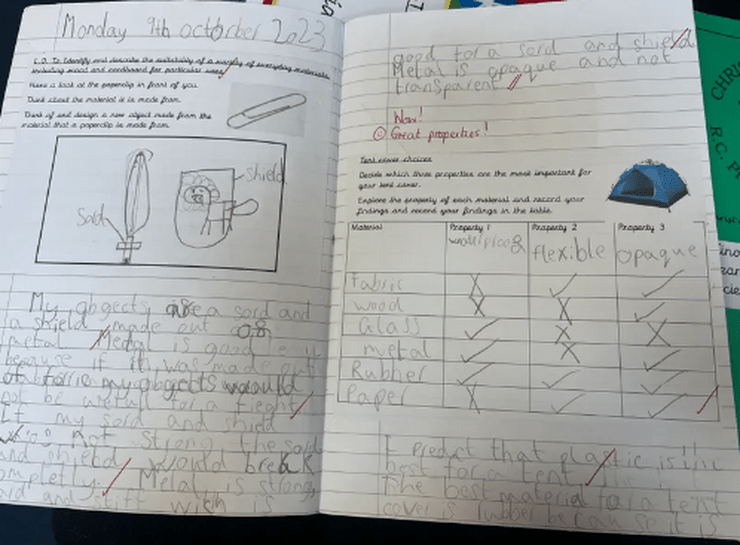 Monday 9th octorber 2023
L.O. To Identify and describe the suitability of a variety of everyday materials
including wood and cardboard for particular uses
Have a look at the paperclip in front of you.
Think about the material it is made from.
Think of and design a new object made from the
material that a paperclip is made from.
Shield
Sord
My obgects are a sord and
a shield made out of
metal Metal is good
because if it was made out
of fabric my obgects would
not be usefull for a fieght
If my sord and shield
was not strong the sord
and shield would break
ompletly Metal is strong
and stiff wich is
good for a sord and shield
Metal is opaque and not
transparent
Wow!
Great properties!
Tent cover choices
Decide which three properties are the most important for
your tent cover.
Explore the property of each material and record your
findings and record your findings in the table.
Material Property 1 Property 2 Property 3
waterproof flexible opaque
fabric X ✓ ✓
wood X X ✓
Glass ✓ X X
metal ✓ X ✓
Rubber ✓ ✓ ✓
Paper X ✓ ✓
I predict that plastic is the
best for a tent
The best material for a tent
cover is rubber because it is
CHRIS
R.C. P